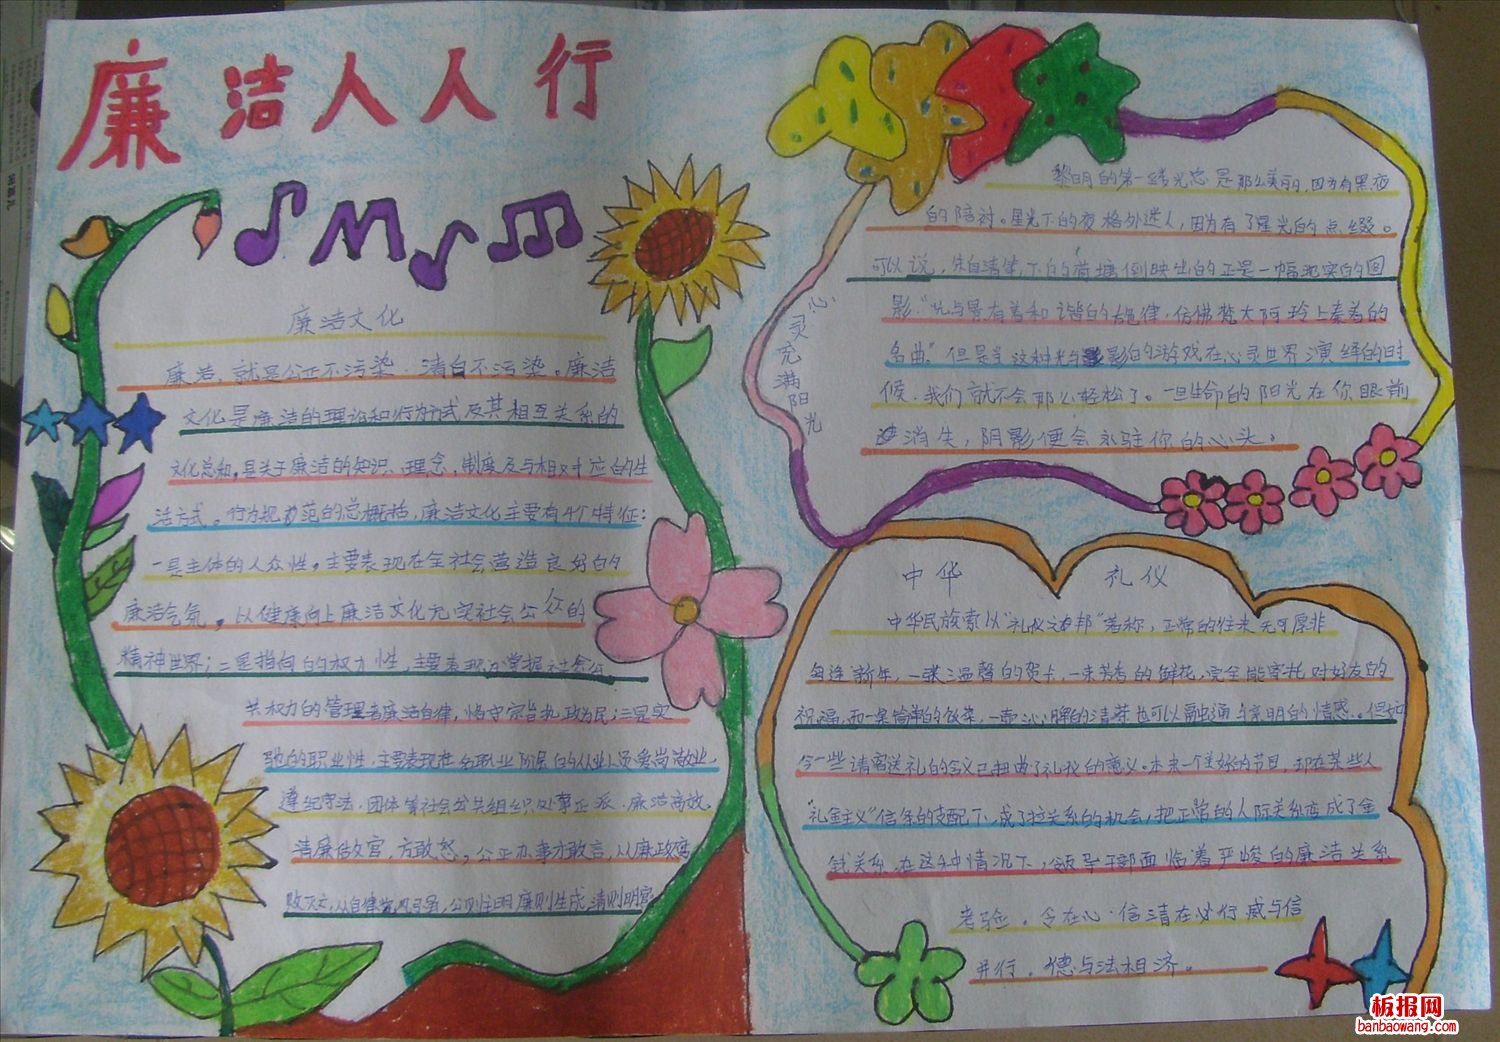 廉洁人人行
廉洁文化
廉洁，就是公正不污染·清白不污染。廉洁
文化是廉洁的理论和行为方式及其相互关系的
文化总和。是关于廉洁的知识、理念，制度及与相对应的生
活方式。行为规范的总概括，廉洁文化主要有4个特征：
一是主体的人众性。主要表现在全社会营造良好的
廉洁气氛，以健康向上廉洁文化充实社会公众的
精神世界；二是指向的权力性，主要表现为掌握社会公
共权力的管理者廉洁自律，恪守宗旨执政为民；三是实
驰的职业性，主要表现在各职业阶层的从业人员爱岗敬业，
遵纪守法，团体等社会公共组织处事正派·廉洁高效
清廉做官，方敢怒。公正办事才敢言，以廉政
败灭，以自律 ，公则生明廉则生威，清则明
心灵充满阳光
黎明的第一缕光总是那么美丽，因为有黑夜
的陪衬。星光下的夜格外迷人，因为有了星光的点缀。
可以说，朱自清笔下的荷塘倒映出的正是一幅现实的图
影“光与影有着和谐的旋律，仿佛梵大阿玲上奏着的
名曲。”但是当这种光与影的游戏在心灵世界演绎的时
候，我们就不会那么轻松了。一旦生命的阳光在你眼前
消失，阴影便会永驻你的心头。
中华 礼仪
中华民族素以“礼仪之邦”著称，正常的往来无可厚非
每逢新年，一张温馨的贺卡，一束芳香的鲜花，完全能寄托对好友的
祝福，而一桌简单的饭菜，一壶沁脾的清茶也可以融通与亲朋的情感。但如
今一些请客送礼的含义已扭曲了礼仪的意义。本来一个美好的节日，却在某些人
“礼金主义”信条的支配下，成了拉关系的机会，把正常的人际关系变成了金
钱关系。在这种情况下，领导干部面临着严峻的廉洁关系
考验。令在心·信清在必行威与信
并行，德与法相济。
板报网
banbaowang.com